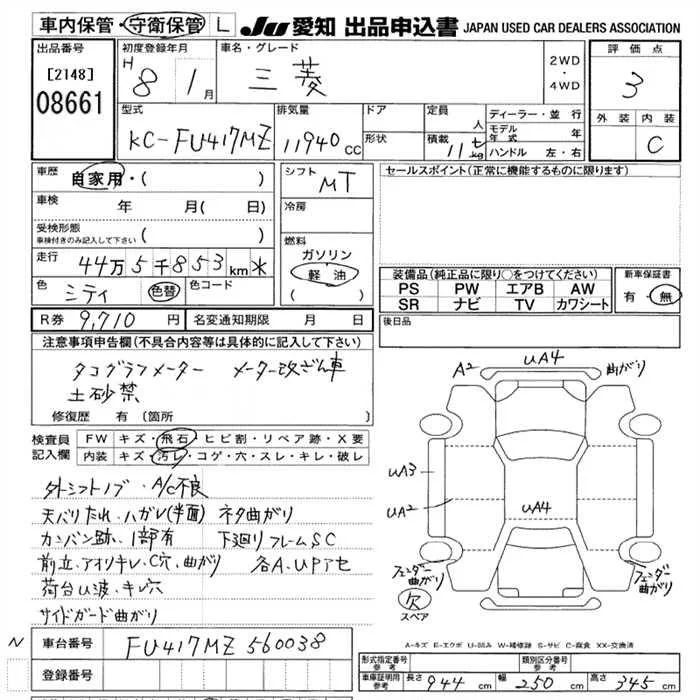 車内保管・守衛保管 L JU 愛知 出品申込書 JAPAN USED CAR DEALERS ASSOCIATION
出品番号
[2148]
08661
初度登録年月
H 8 1月
車名・グレード
三菱
2WD
・
4WD
評価点
3
外装 内装
C
型式
KC-FU417MZ
排気量
11940 CC
ドア
形状
定員
人
積載
11 t kg
ディーラー・並行
モデル年式 年
ハンドル 左・右
車歴
自家用・( )
車検 年 月( 日)
受検形態
車検付きのみ記入して下さい ( )
走行 44万5千853km *
色 シティ 色替 色コード
シフト MT
冷房
燃料
ガソリン
軽油
( )
セールスポイント(正常に機能するものに限ります)
装備品(純正品に限り○をつけてください)
PS PW エアB AW
SR ナビ TV カワシート
新車保証書
有・無
R券 9,710 円 名変通知期限 月 日
後日品
注意事項申告欄(不具合内容等は具体的に記入して下さい)
タコグラフメーター メーター改ざん車
土砂禁
修復歴 有 〔箇所 〕
検査員記入欄
FW キズ・飛石・ヒビ割・リペア跡・X要
内装 キズ・汚レ・コゲ・穴・スレ・キレ・破レ
外シフトノブ・A/C不良
天バリたれ、ハガレ(半面) ネタ曲がり
カンバン跡、1部有 下廻りフレームSC
前立、アオリキレ・C穴、曲がり 各A、UPアセ
荷台U波・キレ穴
サイドガード曲がり
A2 UA4 曲がり
UA3
UA2
UA4
フェンダー曲がり
フェンダー曲がり
欠
スペア
A-キズ E-エクボ U-凹み W-補修跡 S-サビ C-腐食 XX-交換済
N 車台番号 FU417MZ 560038
登録番号
形式指定番号 参考
類別区分番号 参考
車庫証明用 参考 長さ 944 cm 幅 250 cm 高さ 345 cm